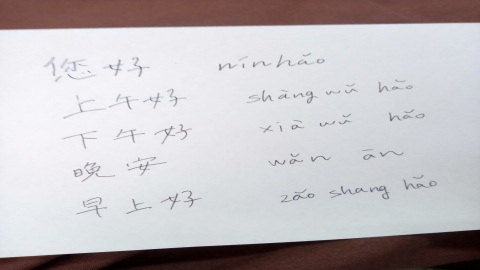 您好 nínhǎo
上午好 shàng wǔ hǎo
下午好 xià wǔ hǎo
晚安 wǎn ān
早上好 zǎo shang hǎo